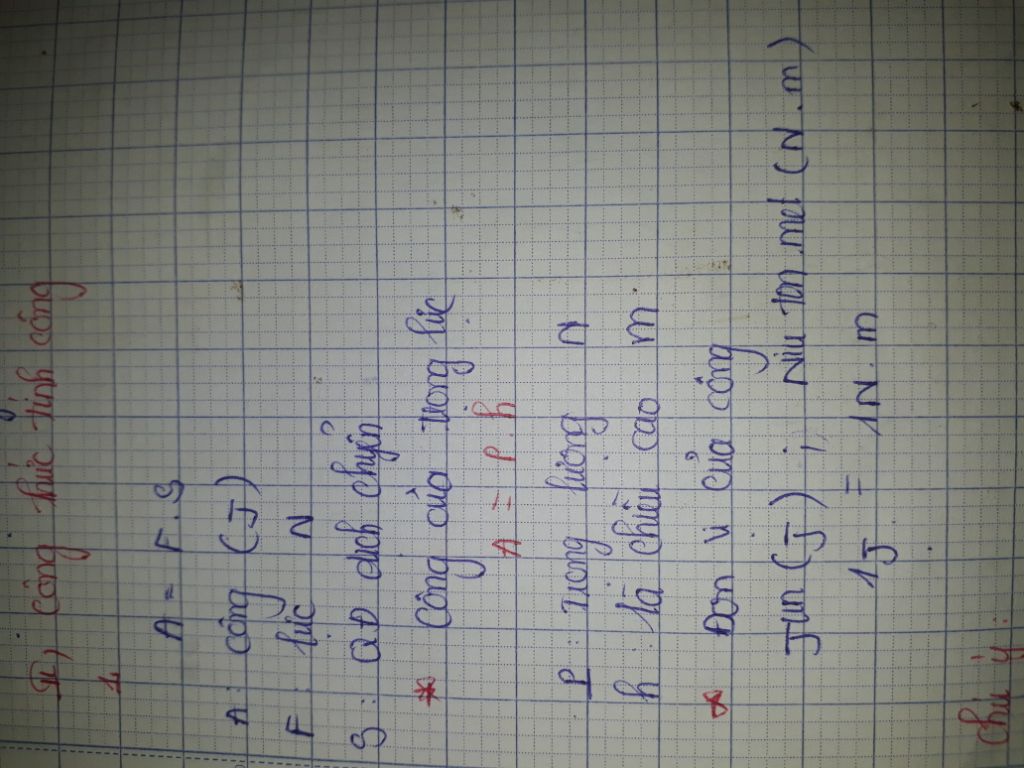 II, Công thức tính công
1
A = F.S
A: công (J)
F: lực N
S: QĐ dịch chuyển
* Công của trọng lực
A = P.h
P: trọng lượng N
h: là chiều cao m
* Đơn vị của công
Jun (J); Niu tơn.met (N.m)
1J = 1N.m
Chú ý: